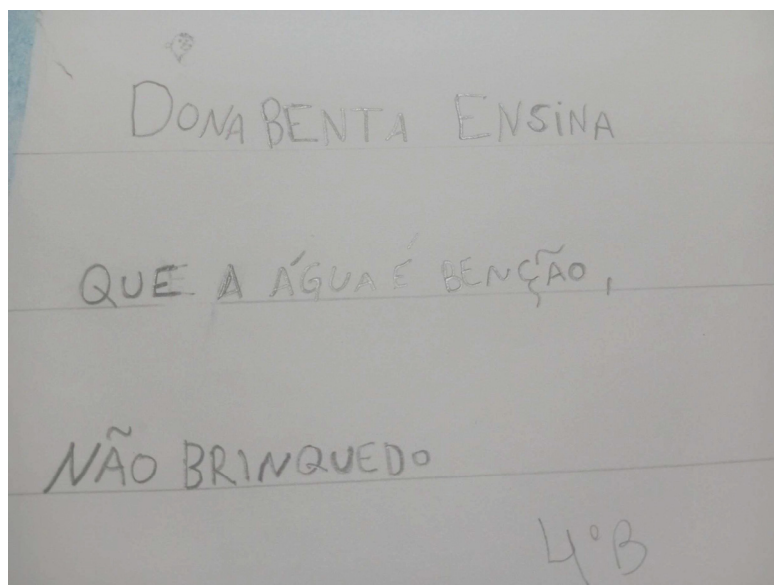 DONA BENTA ENSiNA
QUE A ÁGUA É BENÇÃO,
NÃO BRINQUEDO
4°B